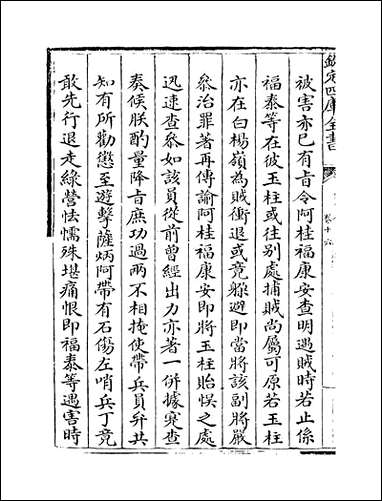 欽定四庫全書
卷十六
被害亦已有旨令阿桂福康安查明遇賊時若止係
福泰等在彼玉柱或往别處捕賊尚屬可原若玉柱
亦在白楊嶺為賊衝退或竟躲避即當將該副將嚴
叅治罪著再傳諭阿桂福康安即將玉柱貽悞之處
迅速查叅如該員從前曾經出力亦著一併據寔查
奏候朕酌量降㫖庶功過兩不相掩使帶兵員弁共
知有所勸懲至遊擊薩炳阿帶有石傷左哨兵丁竟
敢先行退走綠營怯懦殊堪痛恨即福泰等遇害時